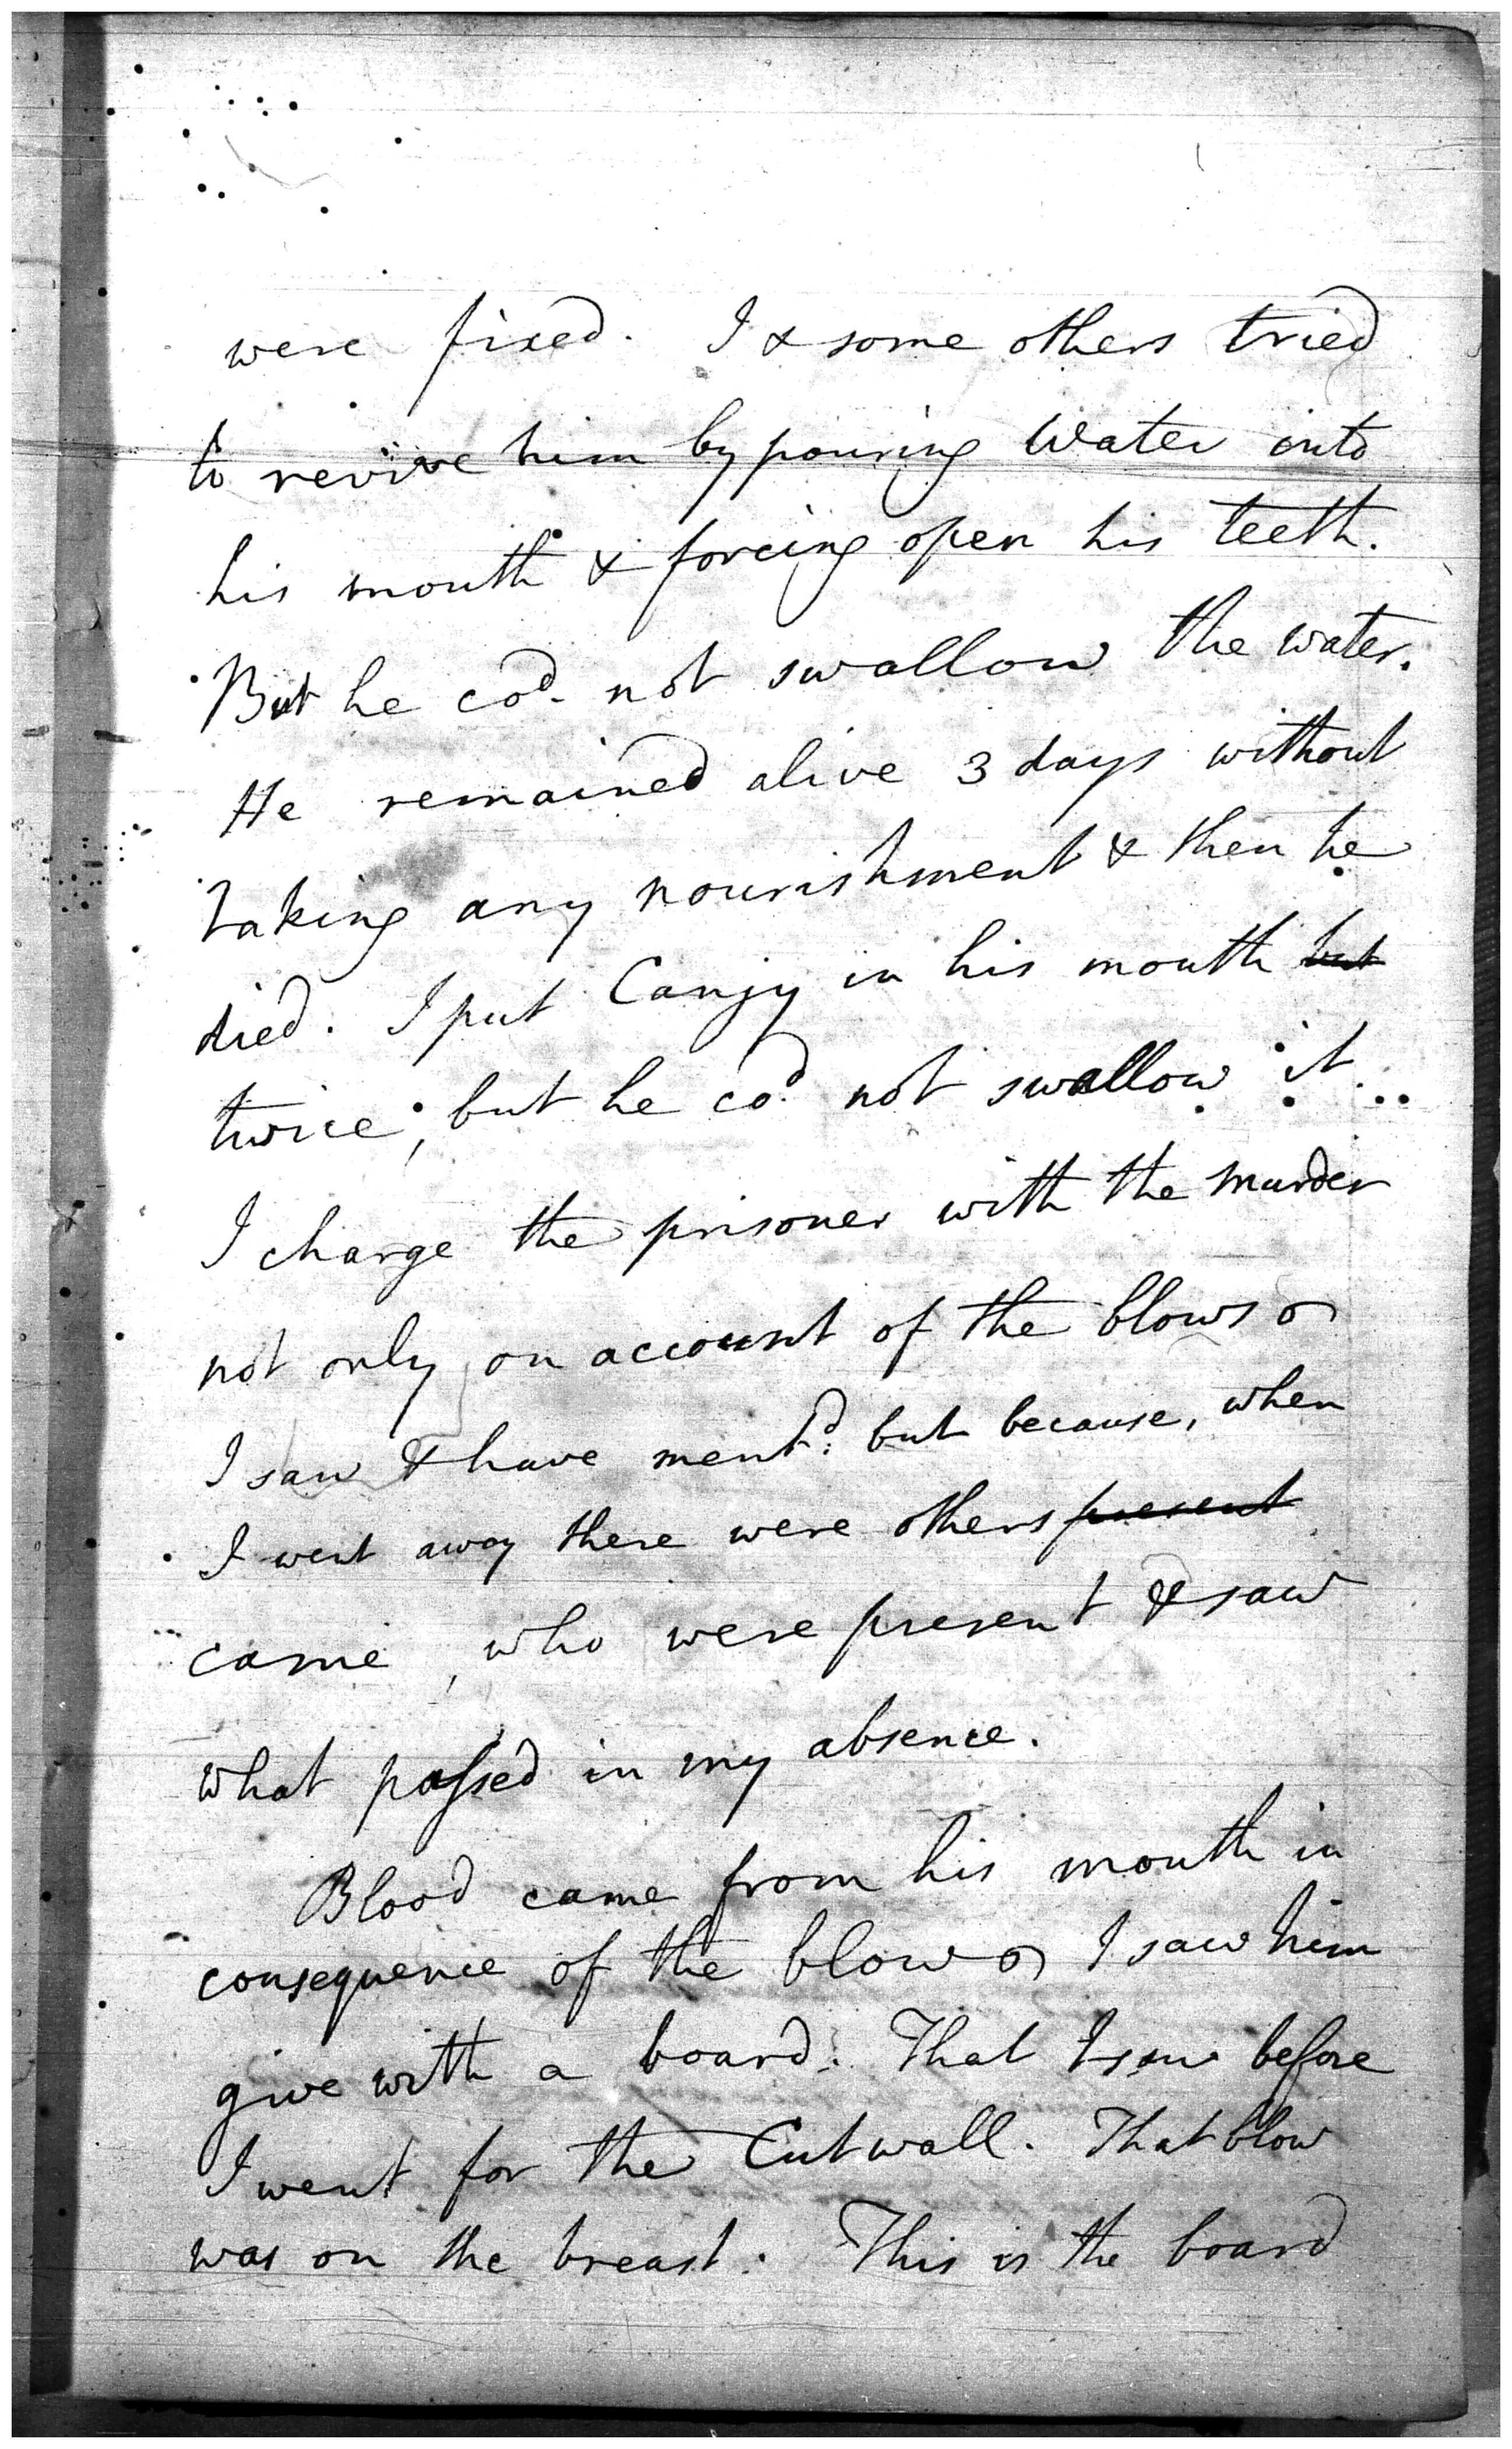 were fixed. I & some others tried
to revive him by pouring Water into
his mouth & forcing open his teeth.
But he cod. not swallow the water.
He remained alive 3 days without
taking any nourishment & then he
died. I put Canjy in his mouth but
twice, but he cod. not swallow it
I charge the prisoner with the murder
not only on account of the blows
I saw & have mentd: but because, when
I went away there were others present
came, who were present & saw
what passed in my absence.
Blood came from his mouth in
consequence of the blow I saw him
give with a board. That I saw before
I went for the Cutwall. That blow
was on the breast. This is the board